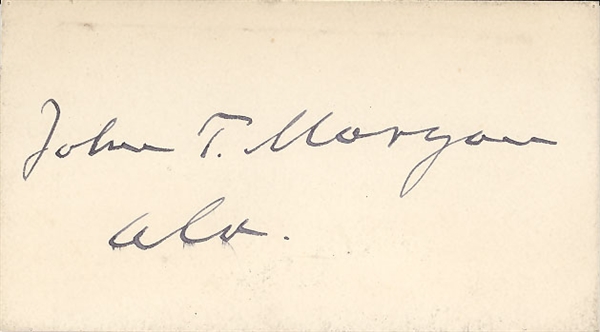 John T. Morgan
Ala.